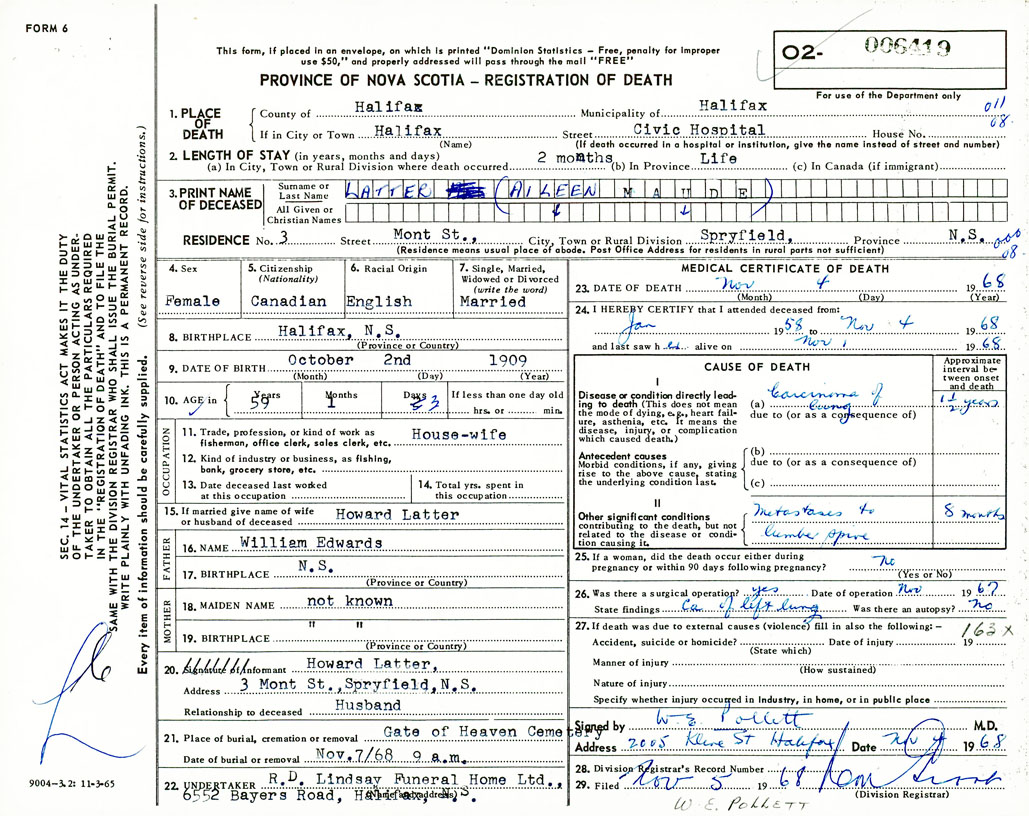 FORM 6
This form, if placed in an envelope, on which is printed "Dominion Statistics – Free, penalty for improper
use $50," and properly addressed will pass through the mail "FREE"
PROVINCE OF NOVA SCOTIA – REGISTRATION OF DEATH
O2- 006419
For use of the Department only
011
08.
1. PLACE OF DEATH
County of Halifax Municipality of Halifax
If in City or Town Halifax Street Civic Hospital House No.
(Name) (If death occurred in a hospital or institution, give the name instead of street and number)
2. LENGTH OF STAY (in years, months and days)
(a) In City, Town or Rural Division where death occurred 2 months (b) In Province Life (c) In Canada (if immigrant)
3. PRINT NAME OF DECEASED
Surname or Last Name LATTER (AILEEN MAUDE)
All Given or Christian Names
RESIDENCE No. 3 Street Mont St., City, Town or Rural Division Spryfield, Province N.S.
(Residence means usual place of abode. Post Office Address for residents in rural parts not sufficient)
000
08.
4. Sex Female
5. Citizenship (Nationality) Canadian
6. Racial Origin English
7. Single, Married, Widowed or Divorced (write the word) Married
8. BIRTHPLACE Halifax, N.S.
(Province or Country)
9. DATE OF BIRTH October 2nd 1909
(Month) (Day) (Year)
10. AGE in Years 59 Months 1 Days 3 If less than one day old hrs. or min.
OCCUPATION
11. Trade, profession, or kind of work as
fisherman, office clerk, sales clerk, etc. House-wife
12. Kind of industry or business, as fishing,
bank, grocery store, etc.
13. Date deceased last worked
at this occupation
14. Total yrs. spent in
this occupation
15. If married give name of wife
or husband of deceased Howard Latter
FATHER
16. NAME William Edwards
17. BIRTHPLACE N.S.
(Province or Country)
MOTHER
18. MAIDEN NAME not known
19. BIRTHPLACE " "
(Province or Country)
20. Signature of Informant Howard Latter,
Address 3 Mont St.,Spryfield,N.S.
Relationship to deceased Husband
21. Place of burial, cremation or removal Gate of Heaven Cemetery
Date of burial or removal Nov.7/68 9 a.m.
22. UNDERTAKER R.D. Lindsay Funeral Home Ltd.,
6552 Bayers Road, Halifax, N.S.
(Name and address)
MEDICAL CERTIFICATE OF DEATH
23. DATE OF DEATH Nov 4 1968
(Month) (Day) (Year)
24. I HEREBY CERTIFY that I attended deceased from:
Jan 1958 to Nov 4 1968
and last saw her alive on Nov 1 1968
CAUSE OF DEATH
Approximate interval between onset and death
I
Disease or condition directly leading to death (This does not mean the mode of dying, e.g., heart failure, asthenia, etc. It means the disease, injury, or complication which caused death.)
(a) Carcinoma of Lung 1½ years
due to (or as a consequence of)
Antecedent causes
Morbid conditions, if any, giving rise to the above cause, stating the underlying condition last.
(b)
due to (or as a consequence of)
(c)
II
Other significant conditions
contributing to the death, but not related to the disease or condition causing it.
Metastases to lumbar spine 8 months
25. If a woman, did the death occur either during
pregnancy or within 90 days following pregnancy? No
(Yes or No)
26. Was there a surgical operation? yes Date of operation Nov 1967
State findings Ca. of left lung Was there an autopsy? No
27. If death was due to external causes (violence) fill in also the following: –
163 x
Accident, suicide or homicide? Date of injury 19
(State which)
Manner of injury
(How sustained)
Nature of injury
Specify whether injury occurred in Industry, in home, or in public place
Signed by W. E. Pollett M.D.
Address 2005 Kline St Halifax Date Nov 4 1968
28. Division Registrar's Record Number
29. Filed Nov 5 1968
(Division Registrar)
W. E. POLLETT
SEC. 14 – VITAL STATISTICS ACT MAKES IT THE DUTY
OF THE UNDERTAKER OR PERSON ACTING AS UNDER-
TAKER TO OBTAIN ALL THE PARTICULARS REQUIRED
IN THE "REGISTRATION OF DEATH" AND TO FILE THE
SAME WITH THE DIVISION REGISTRAR WHO SHALL ISSUE THE BURIAL PERMIT.
WRITE PLAINLY WITH UNFADING INK. THIS IS A PERMANENT RECORD.
Every item of information should be carefully supplied. (See reverse side for instructions.)
9004-3.2: 11-3-65